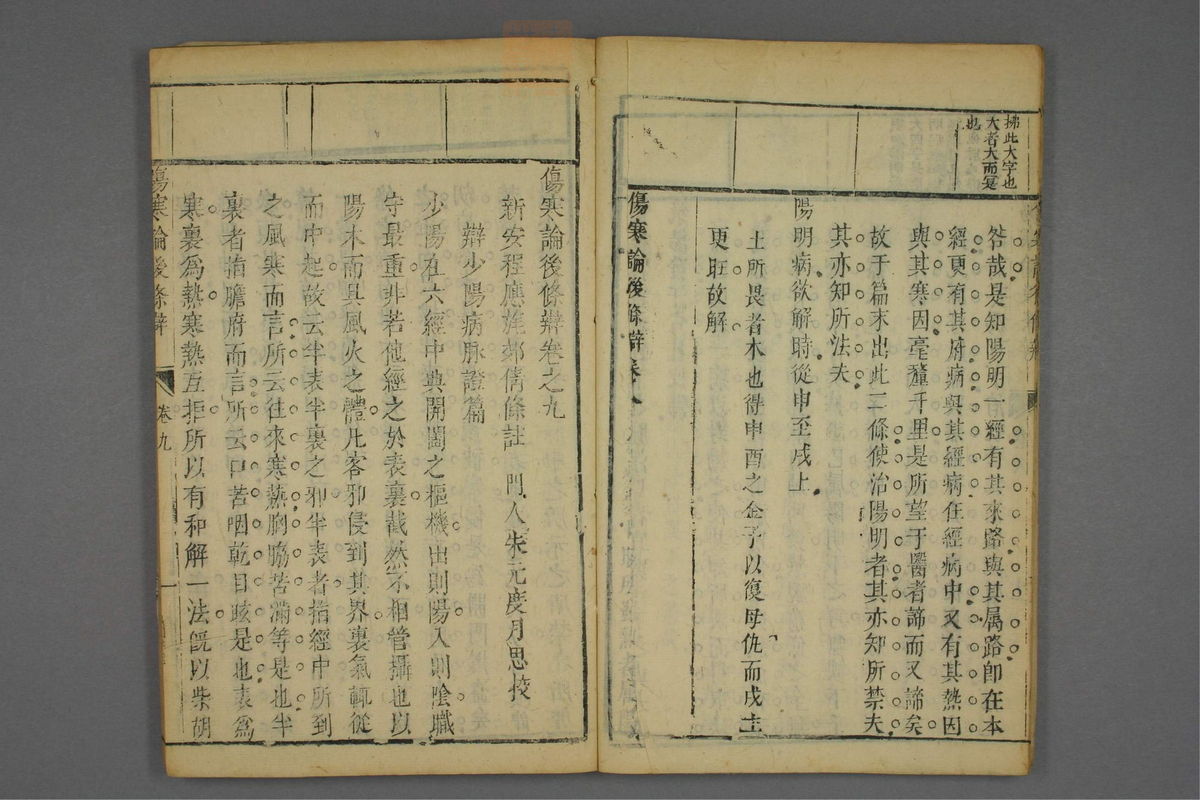 拂此大字也
大者大而寔
也
咎哉是知陽明一經有其來路與其属路卽在本
經更有其府病與其經病在經病中又有其熱因
與其寒因毫釐千里是所望于醫者諦而又諦矣
故于篇末出此三條使治陽明者其亦知所禁夫
其亦知所法夫
陽明病欲解時從申至戌上
土所畏者木也得申酉之金子以復母仇而戌土
更旺故解
傷寒論後條辯卷八
傷寒論後條辯卷之九
新安程應旄郊倩條註 門人朱元度月思校
辯少陽病脉證篇
少陽在六經中典開闔之樞機出則陽入則陰職
守最重非若他經之於表裏截然不相管攝也以
陽木而具風火之體凡客邪侵到其界裏氣輒從
而中起故云半表半裏之邪半表者指經中所到
之風寒而言所云往來寒熱胸脇苦滿等是也半
裏者指膽府而言所云口苦咽乾目眩是也表爲
寒裏爲熱寒熱互拒所以有和解一法旣以柴胡
傷寒論後條辯
卷九
一